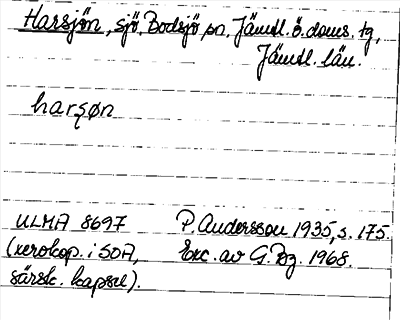 Harsjön, sjö, Bodsjö sn, Jämtl. ö. doms. tg,
Jämtl. län.
harşøn
ULMA 8697 P. Andersson 1935, s. 175.
(xerokop. i SOA, Exc. av G. Pg. 1968.
särsk. kapsel).